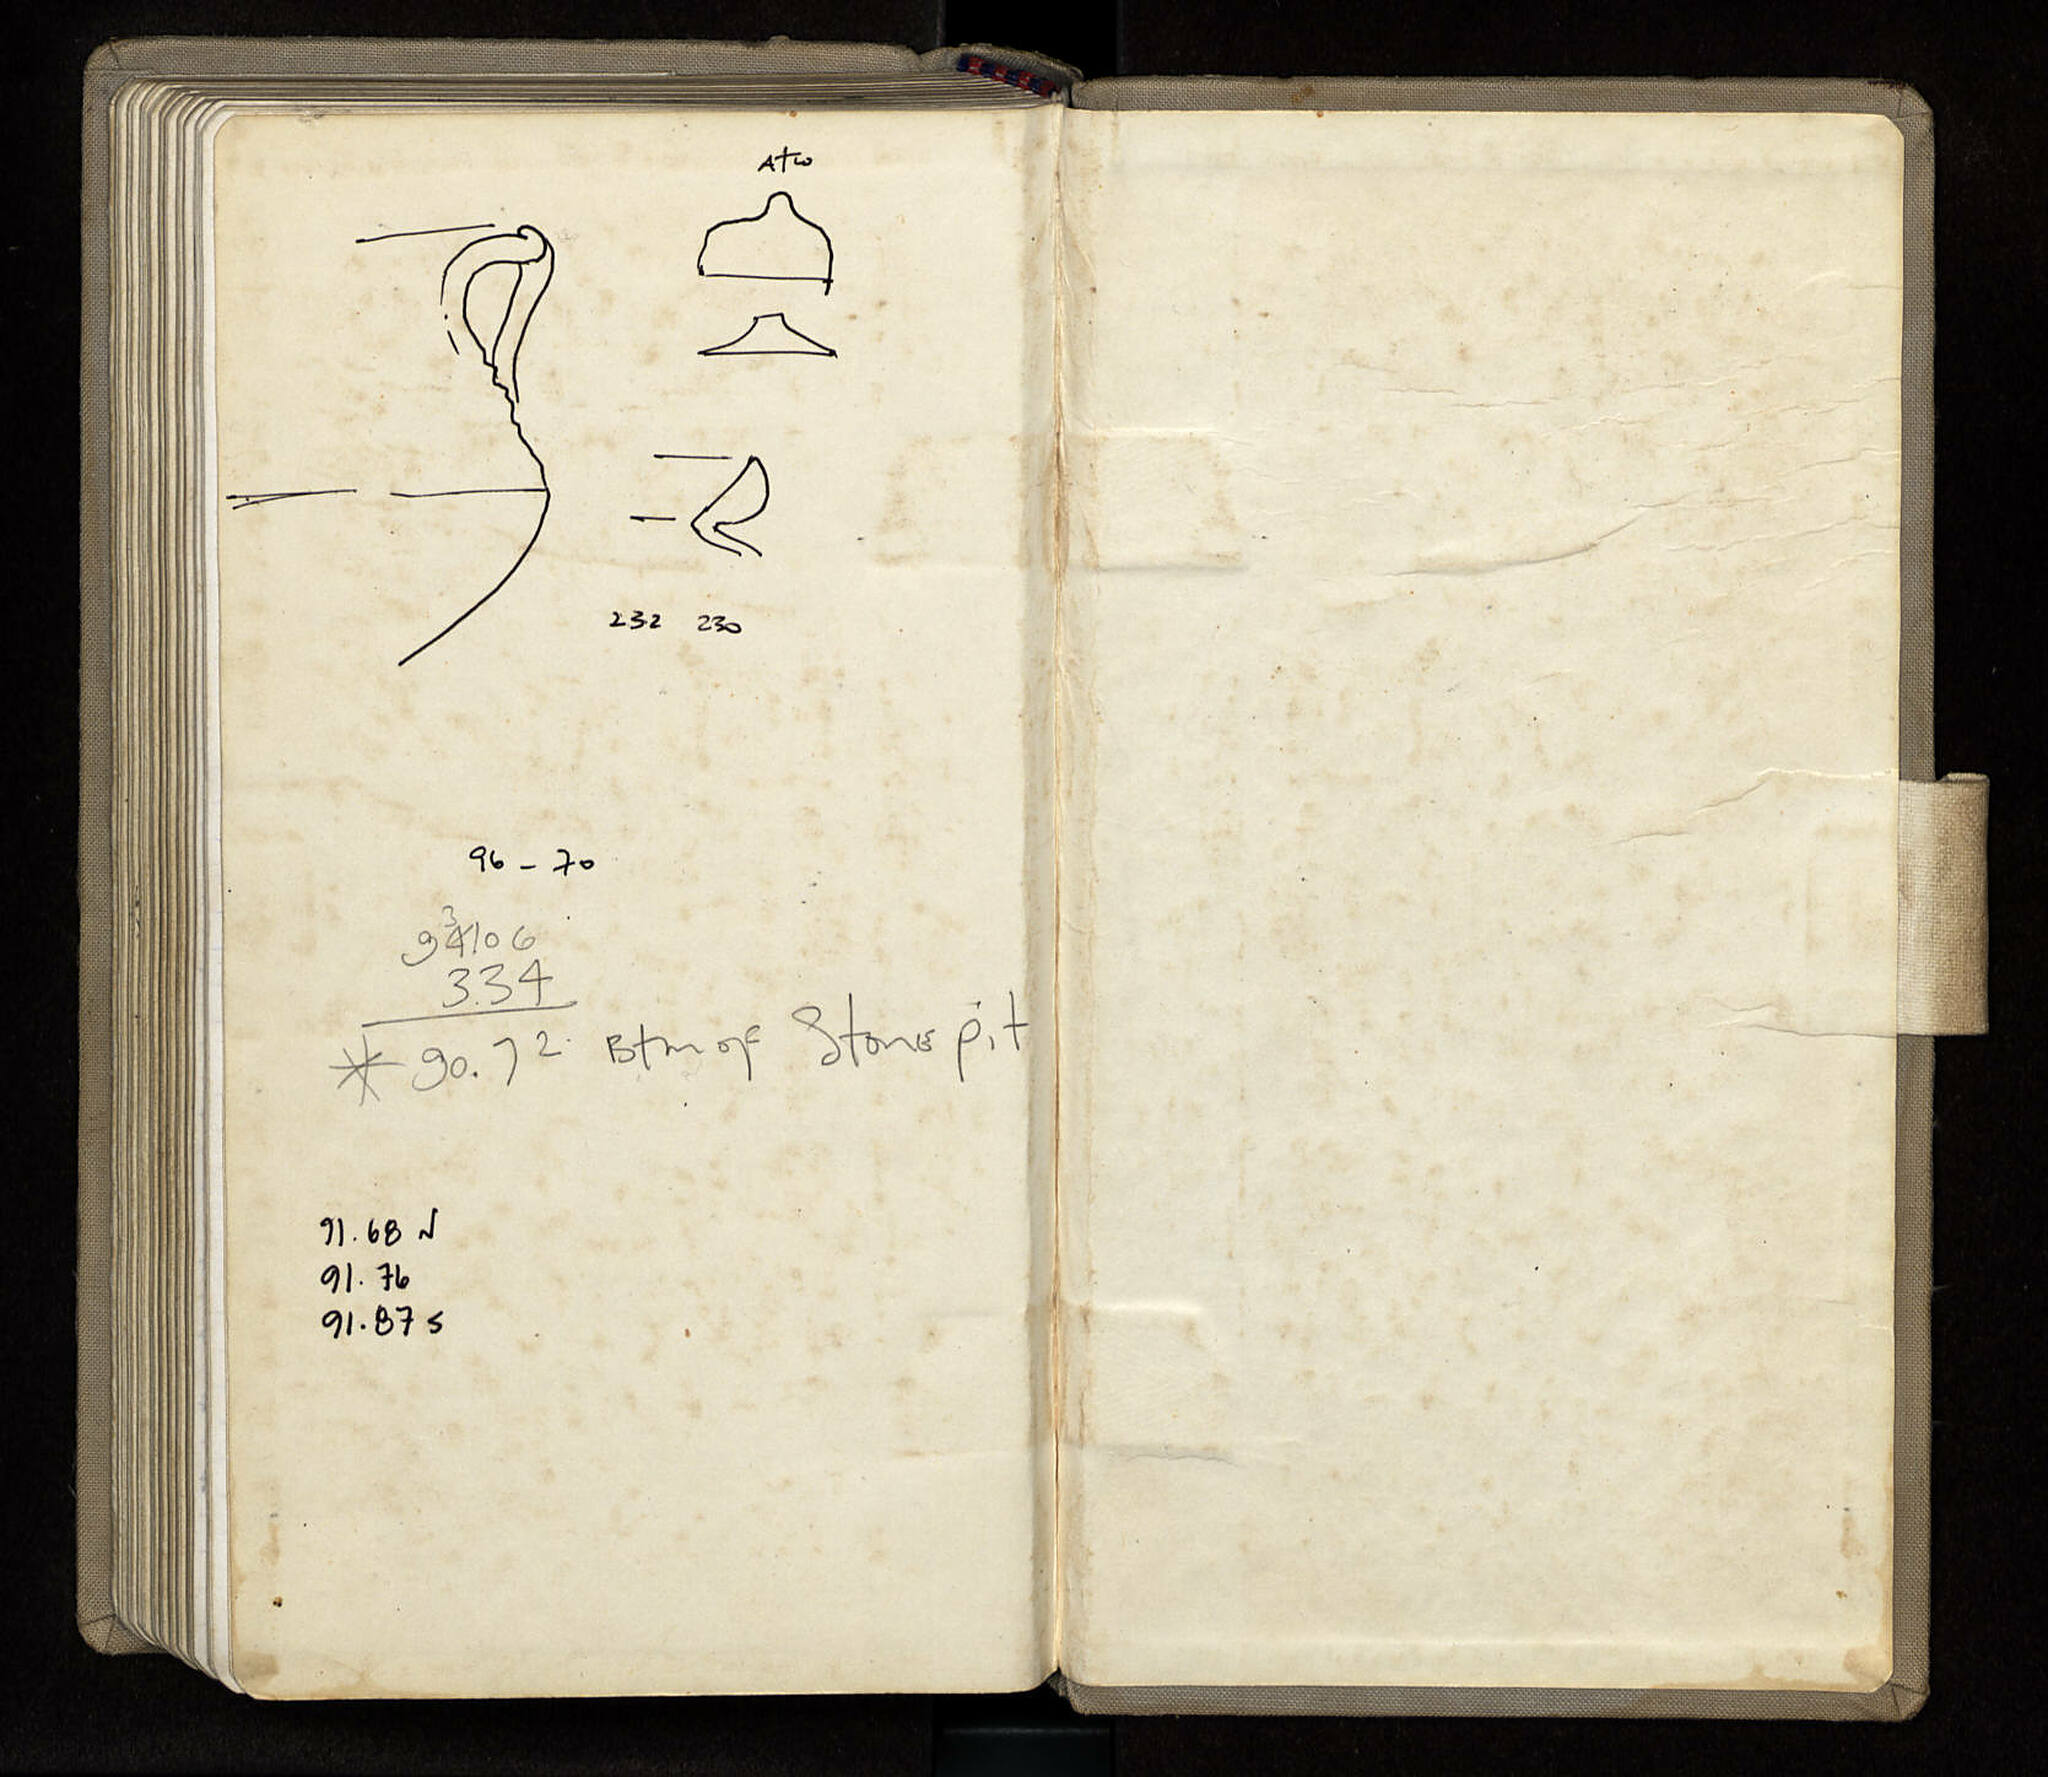 A+W
232 230
96 - 70
3
94106
3.34
* 90.72 Btm of Stone pit
91.68 N
91.76
91.87 S